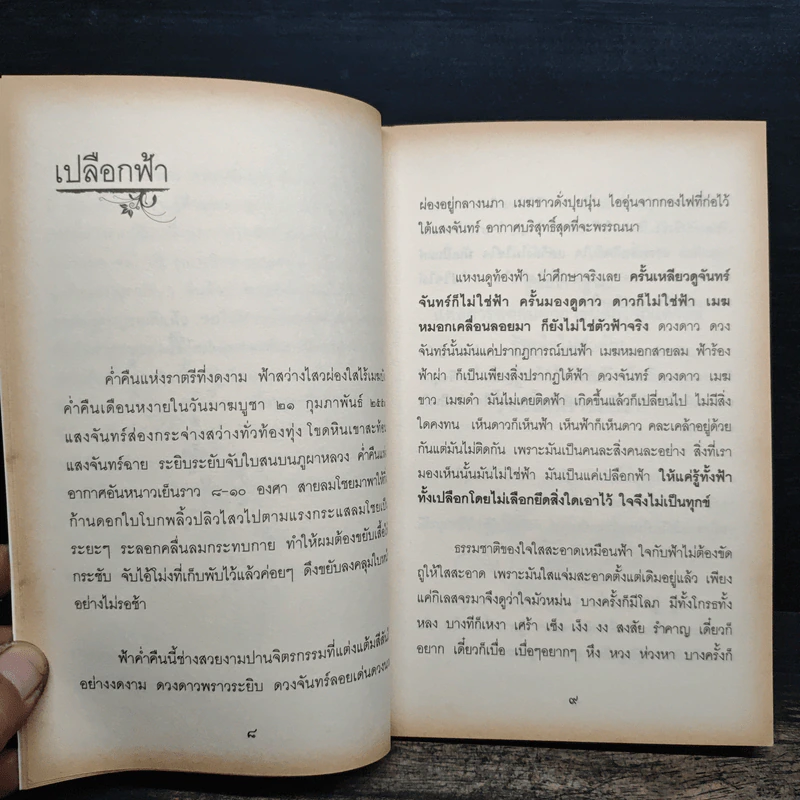 เปลือกฟ้า
ค่ำคืนแห่งราตรีที่งดงาม ฟ้าสว่างไสวผ่องใสไร้เมฆ
ค่ำคืนเดือนหงายในวันมาฆบูชา ๒๑ กุมภาพันธ์
แสงจันทร์ส่องกระจ่างสว่างทั่วท้องทุ่ง โขดหินเขาสะท้อน
แสงจันทร์ฉาย ระยิบระยับจับใบสนบนภูผาหลวง ค่ำคืน
อากาศอันหนาวเย็นราว ๘-๑๐ องศา สายลมโชยมาพาให้
ก้านดอกใบโบกพลิ้วปลิวไสวไปตามแรงกระแสลมโชย
ระยะๆ ระลอกคลื่นลมกระทบกาย ทำให้ผมต้องขยับเสื้อ
กระชับ จับไอ้โม่งที่เก็บพับไว้แล้วค่อยๆ ดึงขยับลงคลุมใบ
อย่างไม่รอช้า
ฟ้าค่ำคืนนี้ช่างสวยงามปานจิตรกรรมที่แต่งแต้มสีสัน
อย่างงดงาม ดวงดาวพราวระยิบ ดวงจันทร์ลอยเด่น
๘
ผ่องอยู่กลางนภา เมฆขาวดั่งปุยนุ่น ไออุ่นจากกองไฟที่ก่อไว้
ใต้แสงจันทร์ อากาศบริสุทธิ์สุดที่จะพรรณนา
แหงนดูท้องฟ้า น่าศึกษาจริงเลย ครั้นเหลียวดูจันทร์
จันทร์ก็ไม่ใช่ฟ้า ครั้นมองดูดาว ดาวก็ไม่ใช่ฟ้า เมฆ
หมอกเคลื่อนลอยมา ก็ยังไม่ใช่ตัวฟ้าจริง ดวงดาว ดวง
จันทร์นั้นมันแค่ปรากฏการณ์บนฟ้า เมฆหมอกสายลม ฟ้าร้อง
ฟ้าผ่า ก็เป็นเพียงสิ่งปรากฏใต้ฟ้า ดวงจันทร์ ดวงดาว เมฆ
ขาว เมฆดำ มันไม่เคยติดฟ้า เกิดขึ้นแล้วก็เปลี่ยนไป ไม่มีสิ่ง
ใดคงทน เห็นดาวก็เห็นฟ้า เห็นฟ้าก็เห็นดาว คละเคล้าอยู่ด้วย
กันแต่มันไม่ติดกัน เพราะมันเป็นคนละสิ่งคนละอย่าง สิ่งที่เรา
มองเห็นนั้นมันไม่ใช่ฟ้า มันเป็นแค่เปลือกฟ้า ให้แค่รู้ทั้งฟ้า
ทั้งเปลือกโดยไม่เลือกยึดสิ่งใดเอาไว้ ใจจึงไม่เป็นทุกข์
ธรรมชาติของใจใสสะอาดเหมือนฟ้า ใจกับฟ้าไม่ต้องขัด
ถูให้ใสสะอาด เพราะมันใสแจ่มสะอาดตั้งแต่เดิมอยู่แล้ว เพียง
แค่กิเลสจรมาจึงดูว่าใจมัวหม่น บางครั้งก็มีโลภ มีทั้งโกรธทั้ง
หลง บางทีก็เหงา เศร้า เซ็ง เง็ง งง สงสัย รำคาญ เดี๋ยวก็
อยาก เดี๋ยวก็เบื่อ เบื่อๆอยากๆ หึง หวง ห่วงหา บางครั้งก็
๙